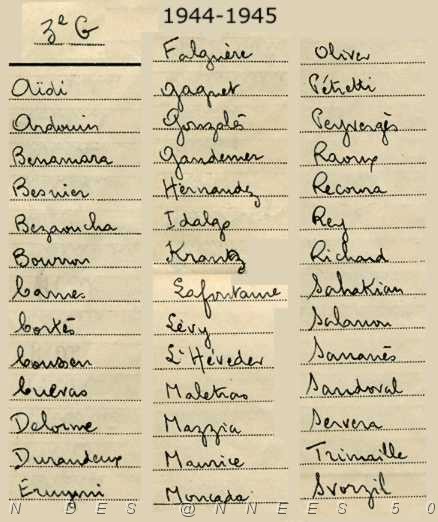 3e G
1944-1945
Aïdi
Ardouin
Benamara
Besnier
Bezaoucha
Bourron
Came
Cortés
Cousson
Cuevas
Delorme
Durandeux
Falguère
Gaquet
Gonzalès
Gandemer
Hernandez
Idalgo
Krantz
Lafontaine
Lévy
L'Héveder
Maletras
Mazzia
Maurice
Moncada
Oliver
Pétretti
Peyvergès
Raoux
Recoura
Rey
Richard
Sahakian
Salanou
Sananès
Sandoval
Servera
Trimaille
N DES @NNEES 50